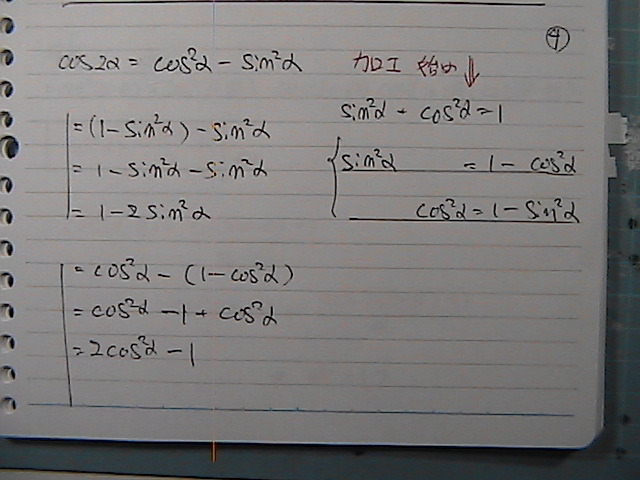 ④
cos2α = cos²α - sin²α
加工 始め ⇓
sin²α + cos²α = 1
= (1 - sin²α) - sin²α
= 1 - sin²α - sin²α
= 1 - 2 sin²α
sin²α = 1 - cos²α
cos²α = 1 - sin²α
= cos²α - (1 - cos²α)
= cos²α - 1 + cos²α
= 2cos²α - 1